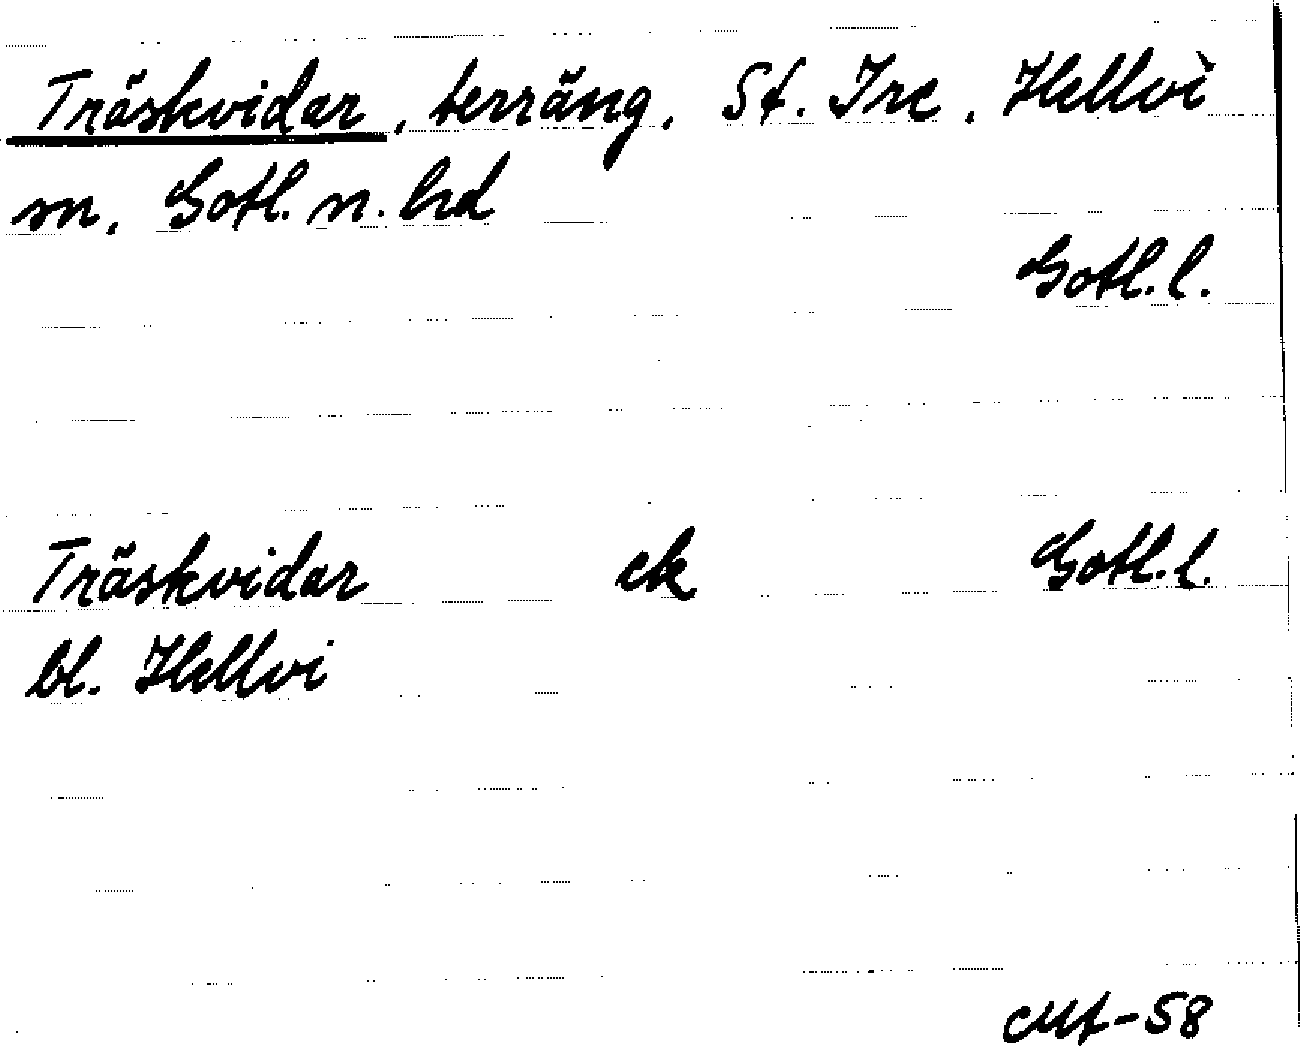 Träskvidar, terräng, St. Ire, Hellvi
sn, Gotl. n. hd
Gotl. l.
Träskvidar ek Gotl. l.
bl. Hellvi
-58